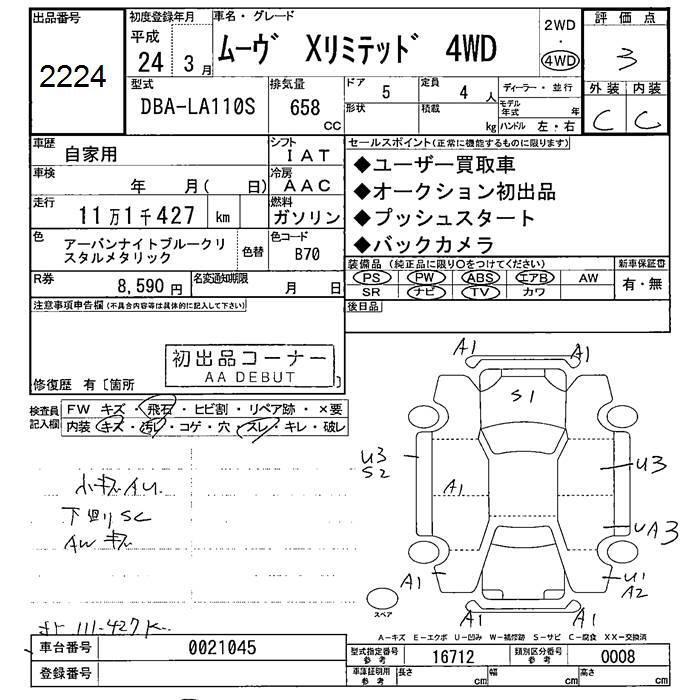 出品番号
2224
初度登録年月
平成
24 3月
車名・グレード
ムーヴ Xリミテッド 4WD
2WD
・
4WD
評価点
3
型式
DBA-LA110S
排気量
658
CC
ドア 5
定員 4 人
形状
積載
kg
ディーラー・並行
モデル年式 年
ハンドル 左・右
外装 内装
C C
車歴
自家用
シフト
IAT
車検
年 月( 日)
冷房
AAC
走行
11万1千427 km
燃料
ガソリン
色
アーバンナイトブルークリスタルメタリック
色替
色コード
B70
R券
8,590円
名変通知期限
月 日
セールスポイント(正常に機能するものに限ります)
◆ユーザー買取車
◆オークション初出品
◆プッシュスタート
◆バックカメラ
装備品(純正品に限り〇をつけてください)
PS PW ABS エアB AW
SR ナビ TV カワ
新車保証書
有・無
後日品
注意事項申告欄(不具合内容等は具体的に記入して下さい)
初出品コーナー
AA DEBUT
修復歴 有〔箇所 〕
検査員記入欄
FW キズ・飛石・ヒビ割・リペア跡・×要
内装 キズ・汚れ・コゲ・穴・スレ・キレ・破レ
小キズAU
下回りSC
AWキズ
111-427K
A1 A1
S1
U3
S2
U3
A1
UA3
A1
U1
A2
A1 A1
スペア
A-キズ E-エクボ U-凹み W-補修跡 S-サビ C-腐食 XX-交換済
車台番号 0021045
登録番号
型式指定番号
参考
16712
類別区分番号
参考
0008
車庫証明用
参考
長さ cm
幅 cm
高さ cm